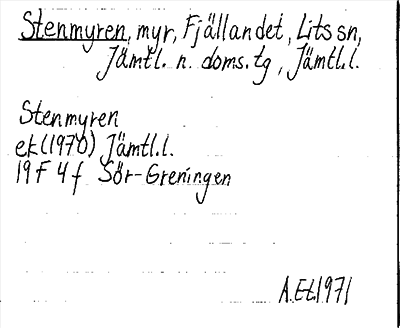 Stenmyren, myr, Fjällandet, Lits sn,
Jämtl. n. doms.tg, Jämtl.l.
Stenmyren
ek(1970) Jämtl.l.
19 F 4 f Sör-Greningen
A.Et.1971